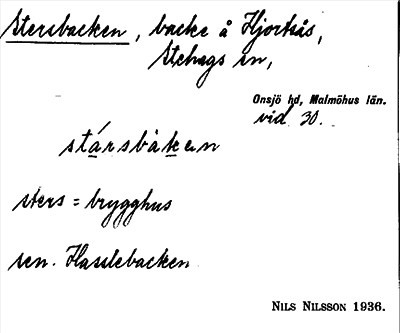 Stersbacken, backe å Hjortsås,
Stehags sn,
Onsjö hd, Malmöhus län.
vid. 30.
stársbàken
sters = brygghus
sen. Hasslebacken
NILS NILSSON 1936.